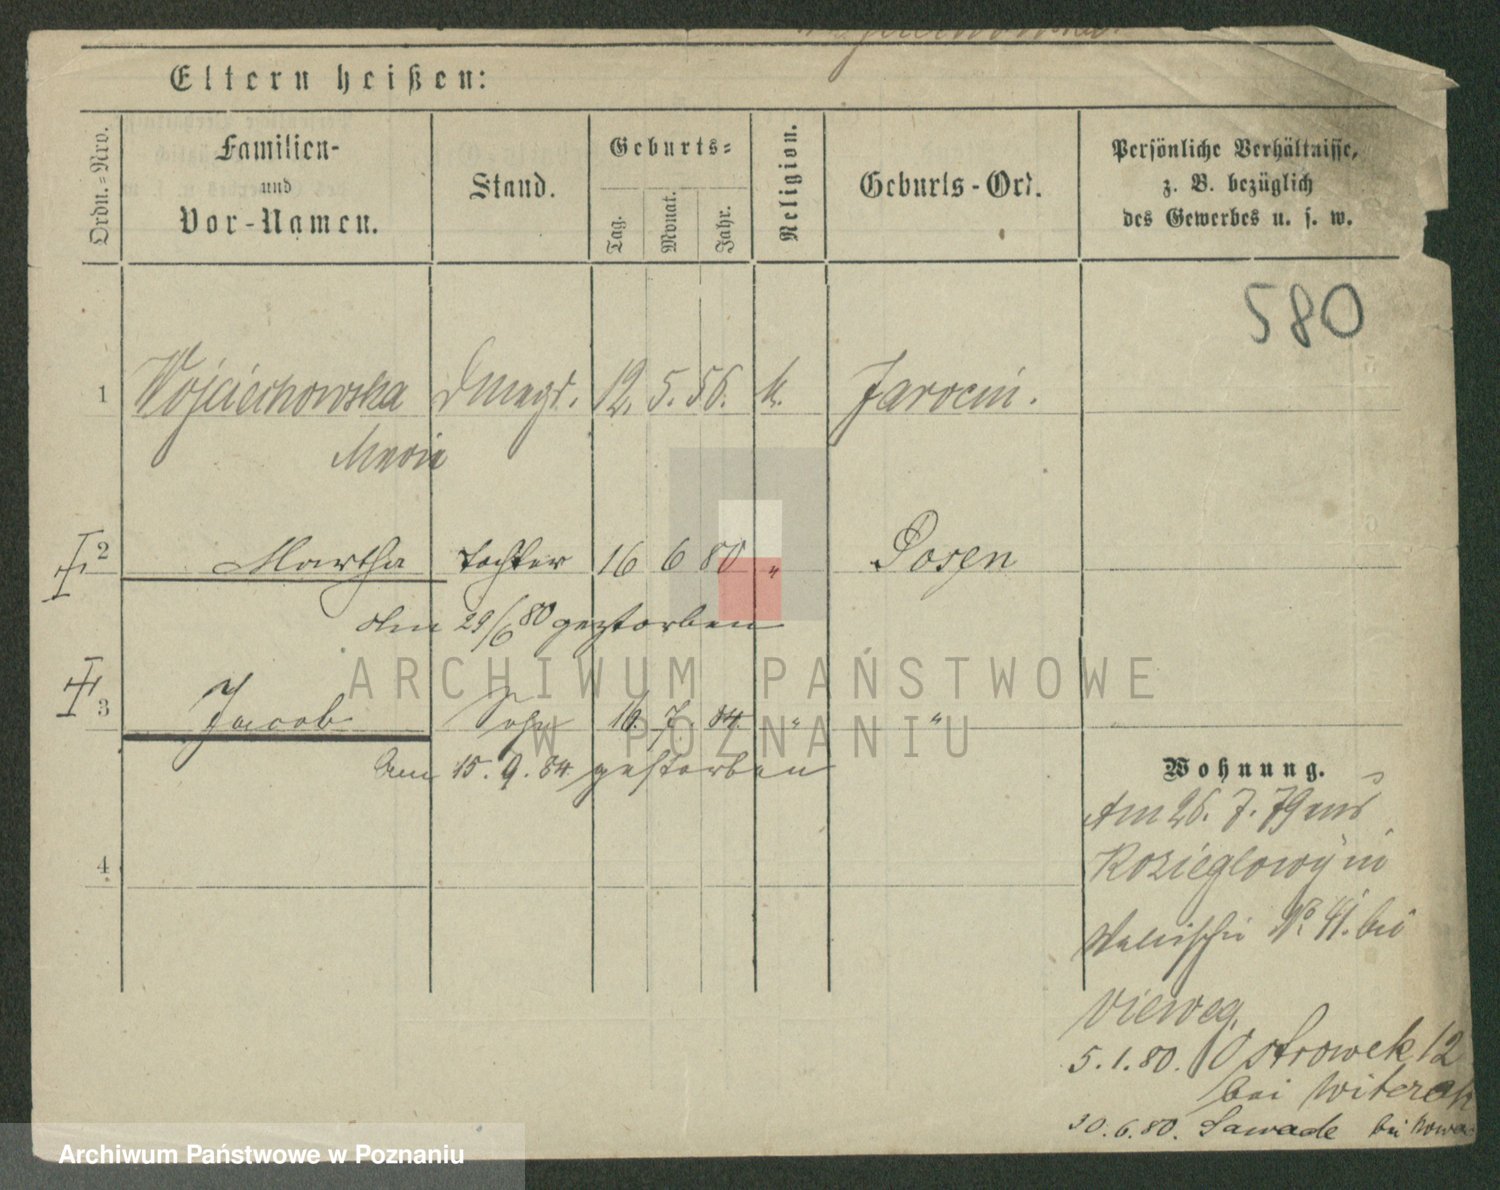 Eltern heißen:
Ordn.-Nro.
Familien-
und
Vor-Namen.
Stand.
Geburts-
Tag.
Monat.
Jahr.
Religion.
Geburts-Ort.
Persönliche Verhältnisse,
z. B. bezüglich
des Gewerbes u. s. w.
580
1 Wojciechowska Dmagd. 12. 5. 56. k. Jarocin.
Maria
2 Martha Tochter 16 6 80 " Posen
Am 29/6 80 gestorben
3 Jacob Sohn 16. 7. 84. " "
Am 15. 9. 84 gestorben
4
Wohnung.
Am 26. 7. 79 aus
Kozieglowy in
Wallischei No. 41. bei
Vieweg.
5. 1. 80. Ostrowek 12
bei Witerak
30. 6. 80. Sawade bei
ARCHIWUM PAŃSTWOWE
W POZNANIU
Archiwum Państwowe w Poznaniu